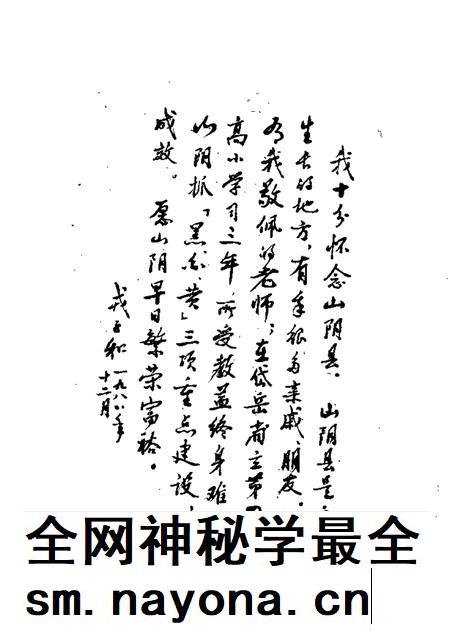 我十分怀念山阴县。山阴县是
生长的地方，有很多亲戚、朋友。
我敬佩的老师；在岱岳省立第
高小学习三年，所受教益终身难
山阴抓「黑、白、黄」三项重点建设，
成效。愿山阴早日繁荣富裕。
戎子和 一九八八年
十二月
全网神秘学最全
sm.nayona.cn